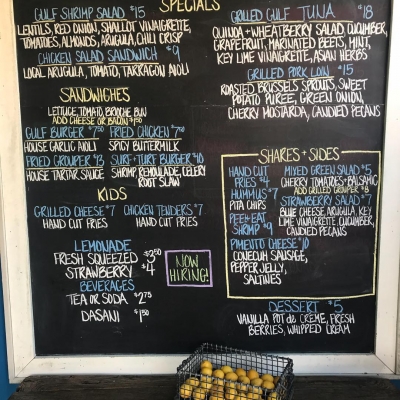 SPECIALS
GULF SHRIMP SALAD $15
LENTILS, RED ONION, SHALLOT VINAIGRETTE,
TOMATOES, ALMONDS, ARUGULA, CHILI CRISP
CHICKEN SALAD SANDWICH $9
LOCAL ARUGULA, TOMATO, TARRAGON AIOLI
GRILLED GULF TUNA $18
QUINOA + WHEATBERRY SALAD CUCUMBER,
GRAPEFRUIT, MARINATED BEETS, MINT,
KEY LIME VINAIGRETTE, ASIAN HERBS
GRILLED PORK LOIN $15
ROASTED BRUSSELS SPROUTS, SWEET
POTATO PUREE, GREEN ONION,
CHERRY MOSTARDA, CANDIED PECANS
SANDWICHES
LETTUCE, TOMATO, BRIOCHE BUN
ADD CHEESE OR BACON $1.50
GULF BURGER $7.50
HOUSE GARLIC AIOLI
FRIED CHICKEN $7.50
SPICY BUTTERMILK
FRIED GROUPER $13
HOUSE TARTAR SAUCE
SURF + TURF BURGER $10
SHRIMP REMOULADE, CELERY
ROOT SLAW
KIDS
GRILLED CHEESE $7
HAND CUT FRIES
CHICKEN TENDERS $7
HAND CUT FRIES
LEMONADE
FRESH SQUEEZED $3.50
STRAWBERRY $4
BEVERAGES
TEA OR SODA $2.75
DASANI $1.50
NOW
HIRING!
SHARES + SIDES
HAND CUT
FRIES $4
HUMMUS $7
PITA CHIPS
PEEL + EAT
SHRIMP $9
PIMENTO CHEESE $10
CONECUH SAUSAGE,
PEPPER JELLY,
SALTINES
MIXED GREEN SALAD $5
CHERRY TOMATOES + BALSAMIC
ADD GRILLED GROUPER $9
STRAWBERRY SALAD $7
BLUE CHEESE, ARUGULA, KEY
LIME VINAIGRETTE, CUCUMBER,
CANDIED PECANS
DESSERT $5
VANILLA POT de CRÈME, FRESH
BERRIES, WHIPPED CREAM